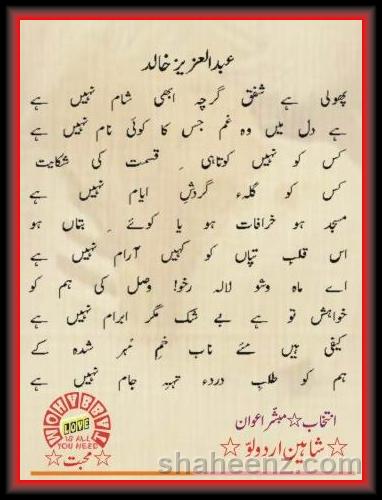 عبدالعزیز خالد
پھولی ہے شفق گرچہ ابھی شام نہیں ہے
ہے دل میں وہ غم جس کا کوئی نام نہیں ہے
کس کو نہیں کوتاہیِ قسمت کی شکایت
کس کو گلہء گردشِ ایام نہیں ہے
مسجد ہو خرافات ہو یا کوئے ِ بتاں ہو
اس قلبِ تپاں کو کہیں آرام نہیں ہے
اے ماہ وشو لالہ رخو! وصل کی ہم کو
خواہش تو ہے بے شک مگر ابرام نہیں ہے
کیفی ہیں مئے ناب خمِ مُہر شدہ کے
ہم کو طلبِ دردء تہہِ جام نہیں ہے
انتخاب ☆ مبشر اعوان
☆ شاہین اردو لو ☆
MOHABBAT
LOVE
IS ALL
YOU NEED
☆ محبت ☆
shaheenz.com